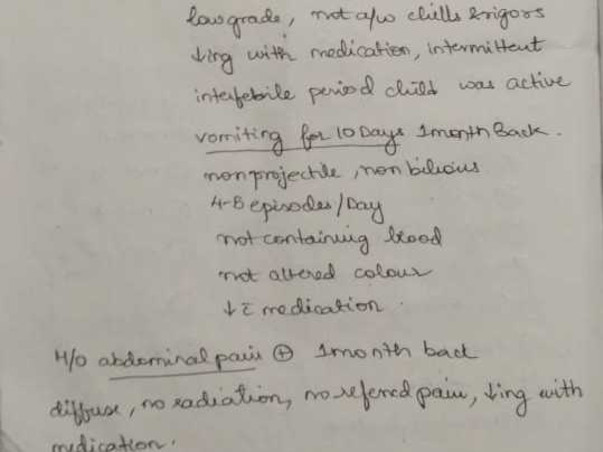 low grade, not a/w chills & rigors
↓ing with medication, intermittent
interfebrile period child was active
vomiting for 10 Days 1month Back.
nonprojectile, non bilious
4-8 episodes/Day
not containing blood
not altered colour
↓ c̄ medication.
H/o abdominal pain ⊕ 1month back
diffuse, no radiation, no referred pain, ↓ing with
medication.